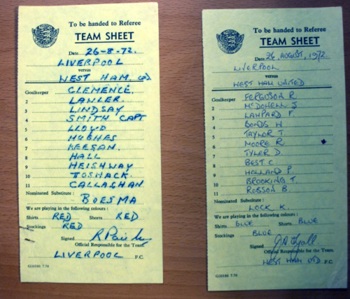 To be handed to Referee
TEAM SHEET
Date 26-8-72.
LIVERPOOL
versus
WEST HAM UD
Goalkeeper CLEMENCE.
2 LAWLER
3 LINDSAY
4 SMITH CAPT
5 LLOYD
6 HUGHES
7 KEEGAN.
8 HALL
9 HEIGHWAY
10 TOSHACK
11 CALLAGHAN
Nominated Substitute :
BOESMA
We are playing in the following colours :
Shirts RED Shorts RED
Stockings RED
Signed
Official Responsible for the Team
LIVERPOOL F.C.
To be handed to Referee
TEAM SHEET
Date 26 AUGUST, 1972
LIVERPOOL
versus
WEST HAM UNITED
Goalkeeper FERGUSON R
2 McDOWELL J
3 LAMPARD F
4 BONDS W
5 TAYLOR T
6 MOORE R
7 TYLER D
8 BEST C
9 HOLLAND P
10 BROOKING T
11 ROBSON B
Nominated Substitute :
LOCK K.
We are playing in the following colours :
Shirts BLUE Shorts BLUE
Stockings BLUE
Signed
Official Responsible for the Team
WEST HAM UTD. F.C.